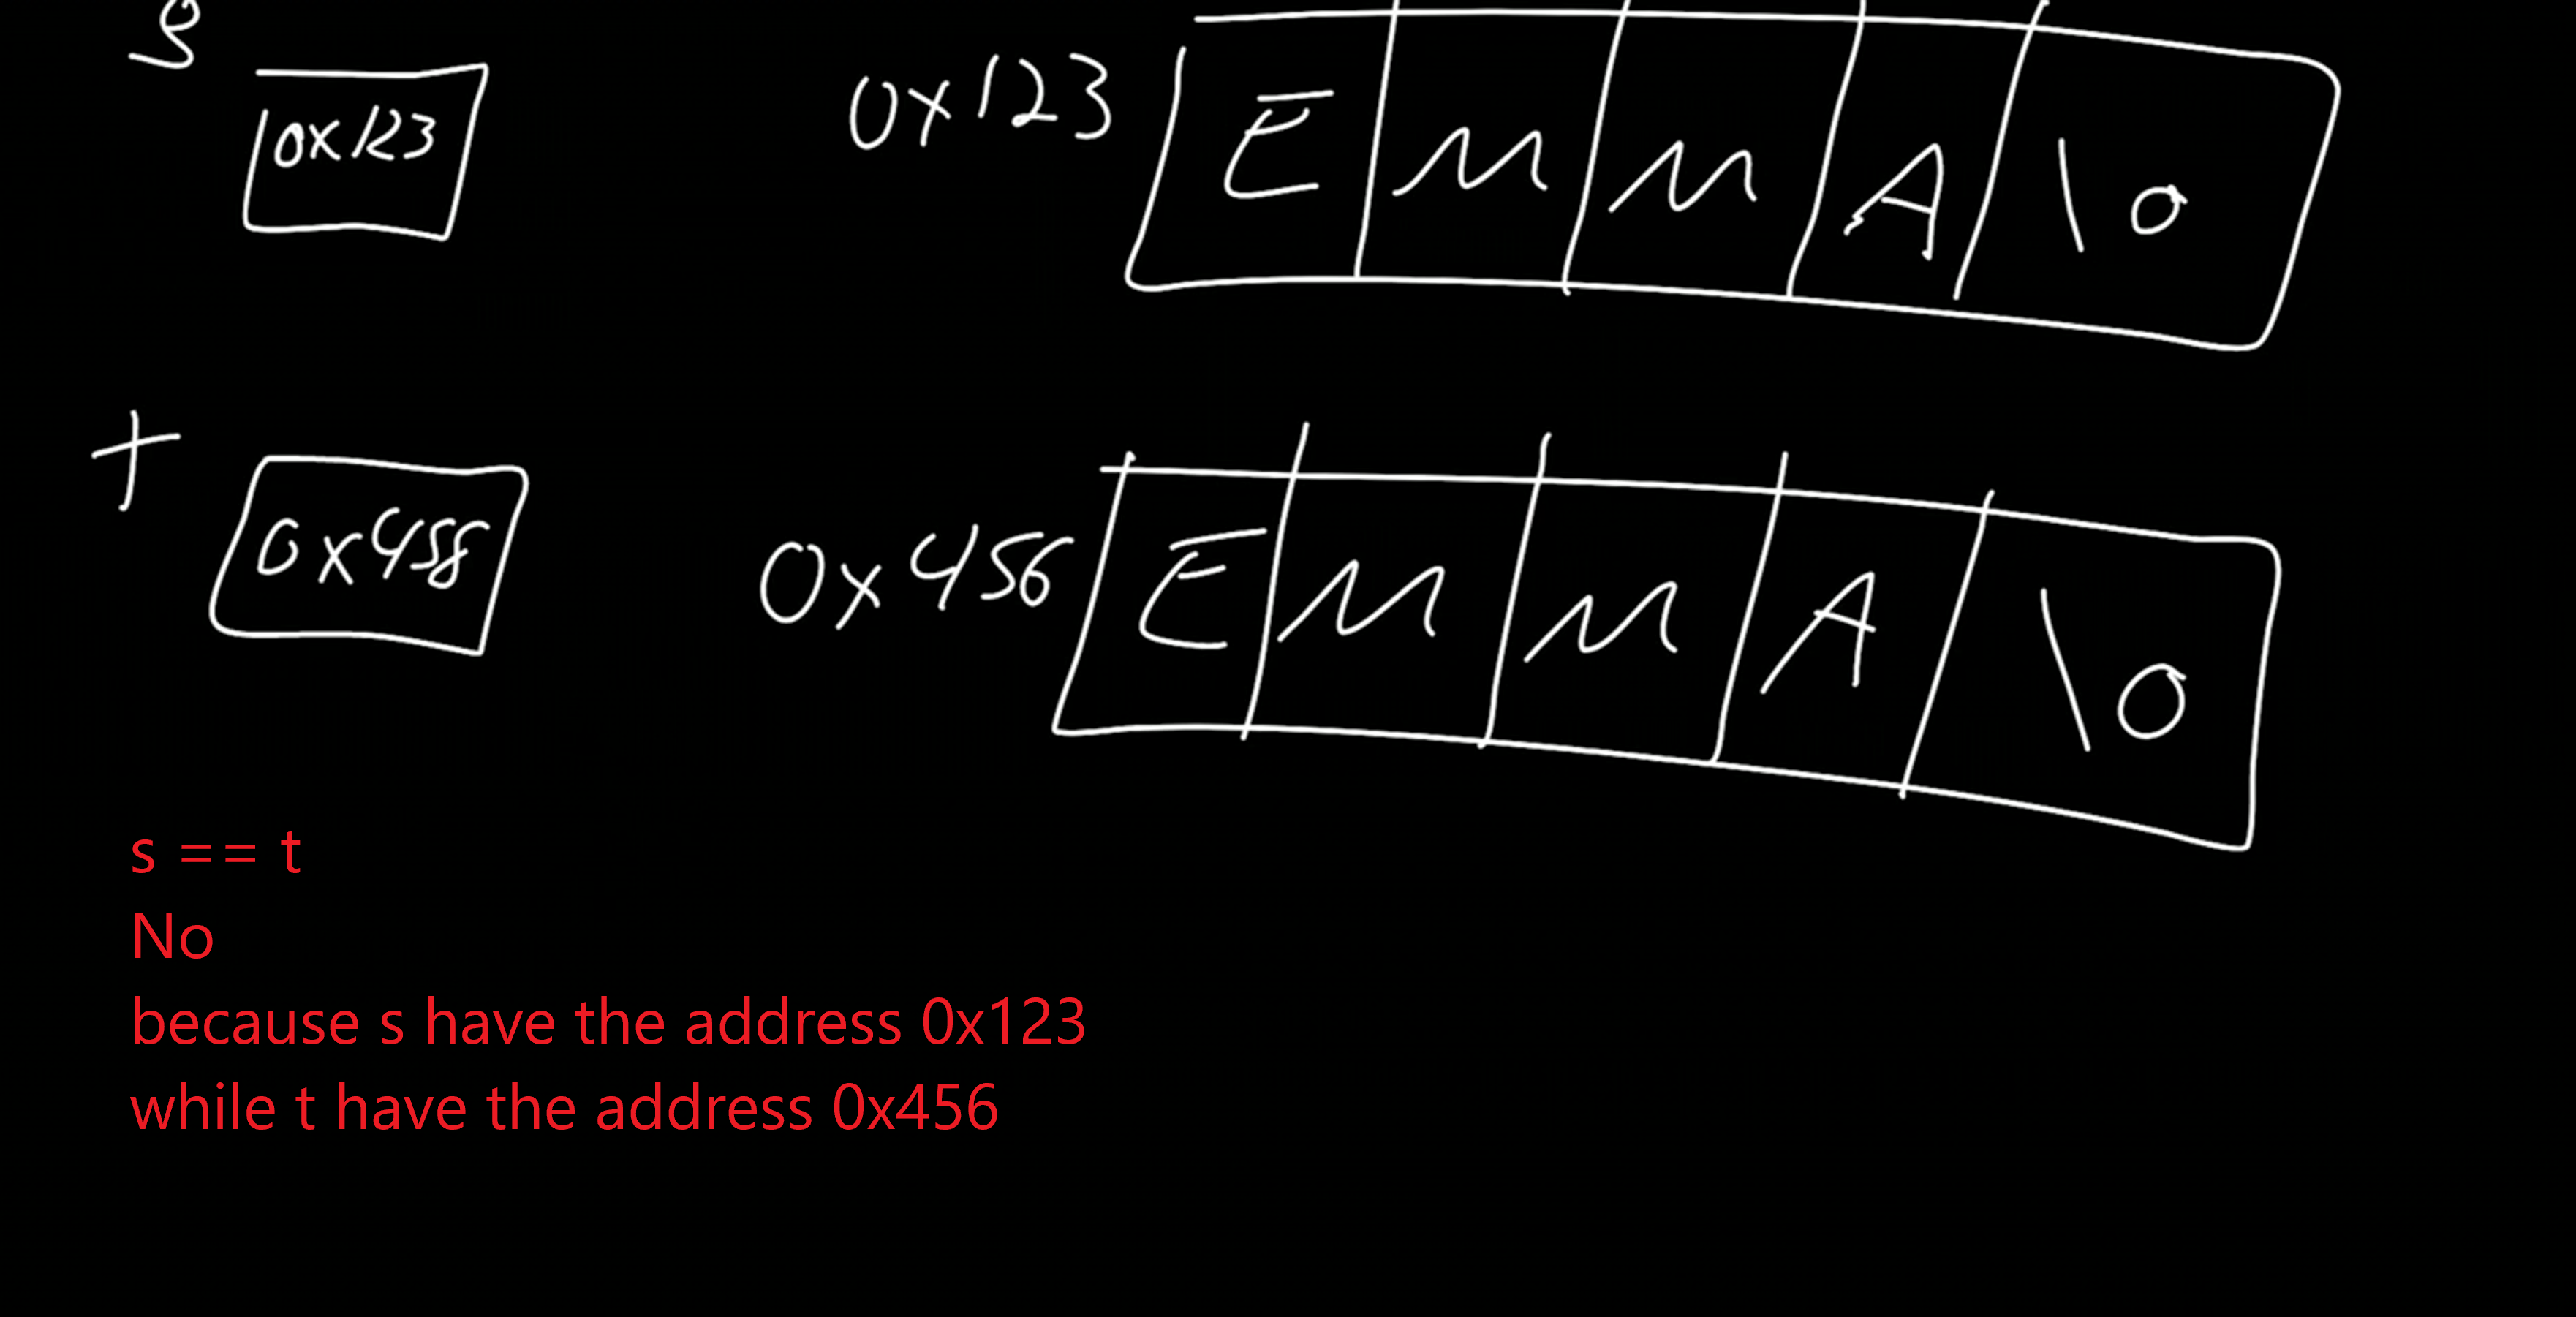 s
0x123
0x123 E M M A \0
t
0x456
0x456 E M M A \0
s == t
No
because s have the address 0x123
while t have the address 0x456